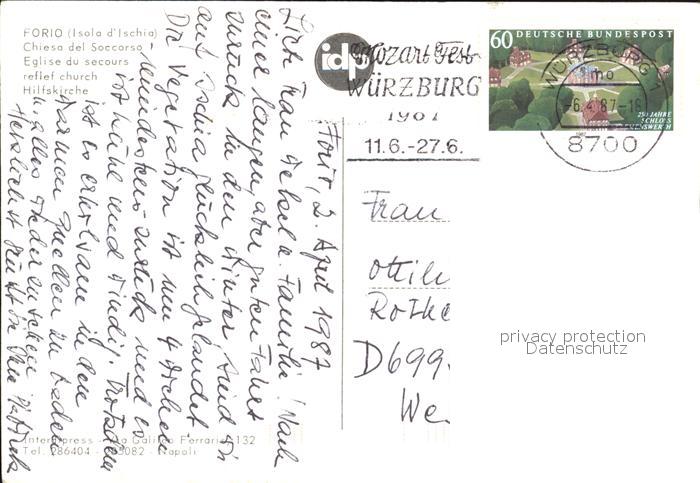 FORIO (Isola d'Ischia)
Chiesa del Soccorso
Eglise du secours
relief church
Hilfskirche
idp
Mozart Fest
WÜRZBURG
1987
11.6.-27.6.
60 DEUTSCHE BUNDESPOST
250 JAHRE
SCHLOSS
CLEMENSWERTH
WÜRZBURG 1
-6.4.87-18
8700
Forio, 2. April 1987
Liebe Frau & Familie! Nach
einer langen, aber guten Fahrt
zurück in den Winter sind wir
auf Ischia glücklich gelandet.
Die Vegetation ist um 4 Wochen
mindestens zurück und es
ist kühl und windig. Trotzdem
ist es erholsam in den
warmen Quellen zu baden
u. alles andere
Herzlichst grüßt Sie Ihre
Frau
Ottili
Rothe
D 699
We
privacy protection
Datenschutz
Interdipress - Via Galileo Ferraris 132
Tel. 286404 - Napoli